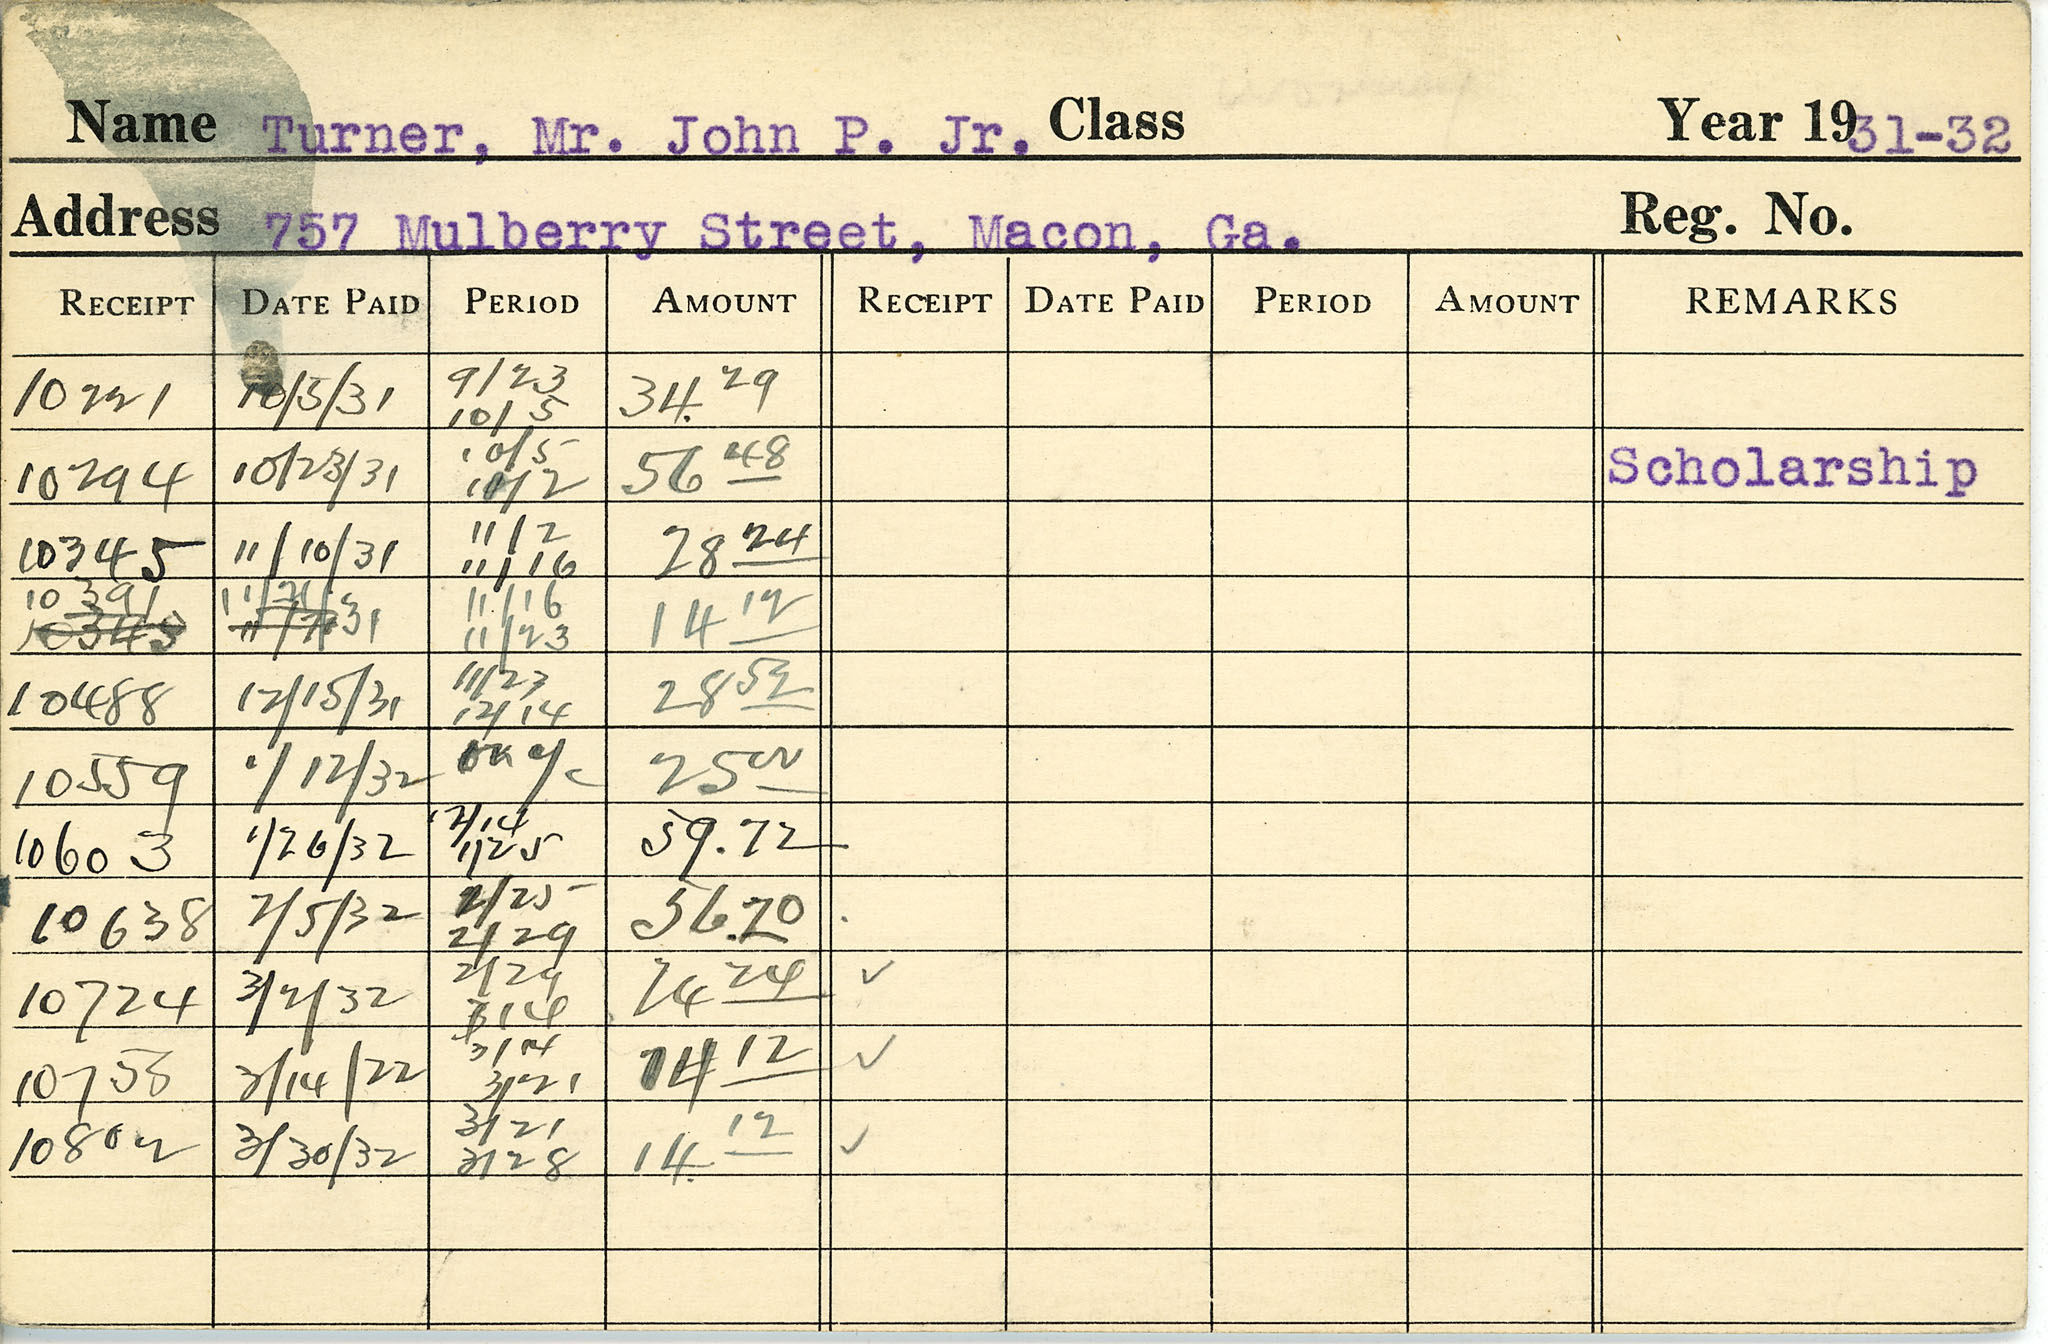 Name Turner, Mr. John P. Jr. Class Year 1931-32
Address 757 Mulberry Street, Macon, Ga. Reg. No.
RECEIPT DATE PAID PERIOD AMOUNT RECEIPT DATE PAID PERIOD AMOUNT REMARKS
10221 10/5/31 9/23 10/5 34.29
10294 10/23/31 10/5 11/2 56 48 Scholarship
10345 11/10/31 11/2 11/16 28 24
10391 11/21/31 11/16 11/23 14 12
10345
10488 12/15/31 11/23 12/14 28 52
10559 1/12/32 on a/c 25 00
10603 1/26/32 12/14 1/25 59.72
10638 2/5/32 1/25 2/29 56.70
10724 3/2/32 2/29 3/14 24 ✓
10758 3/14/22 3/14 3/21 14 12 ✓
10802 3/30/32 3/21 3/28 14. 12 ✓